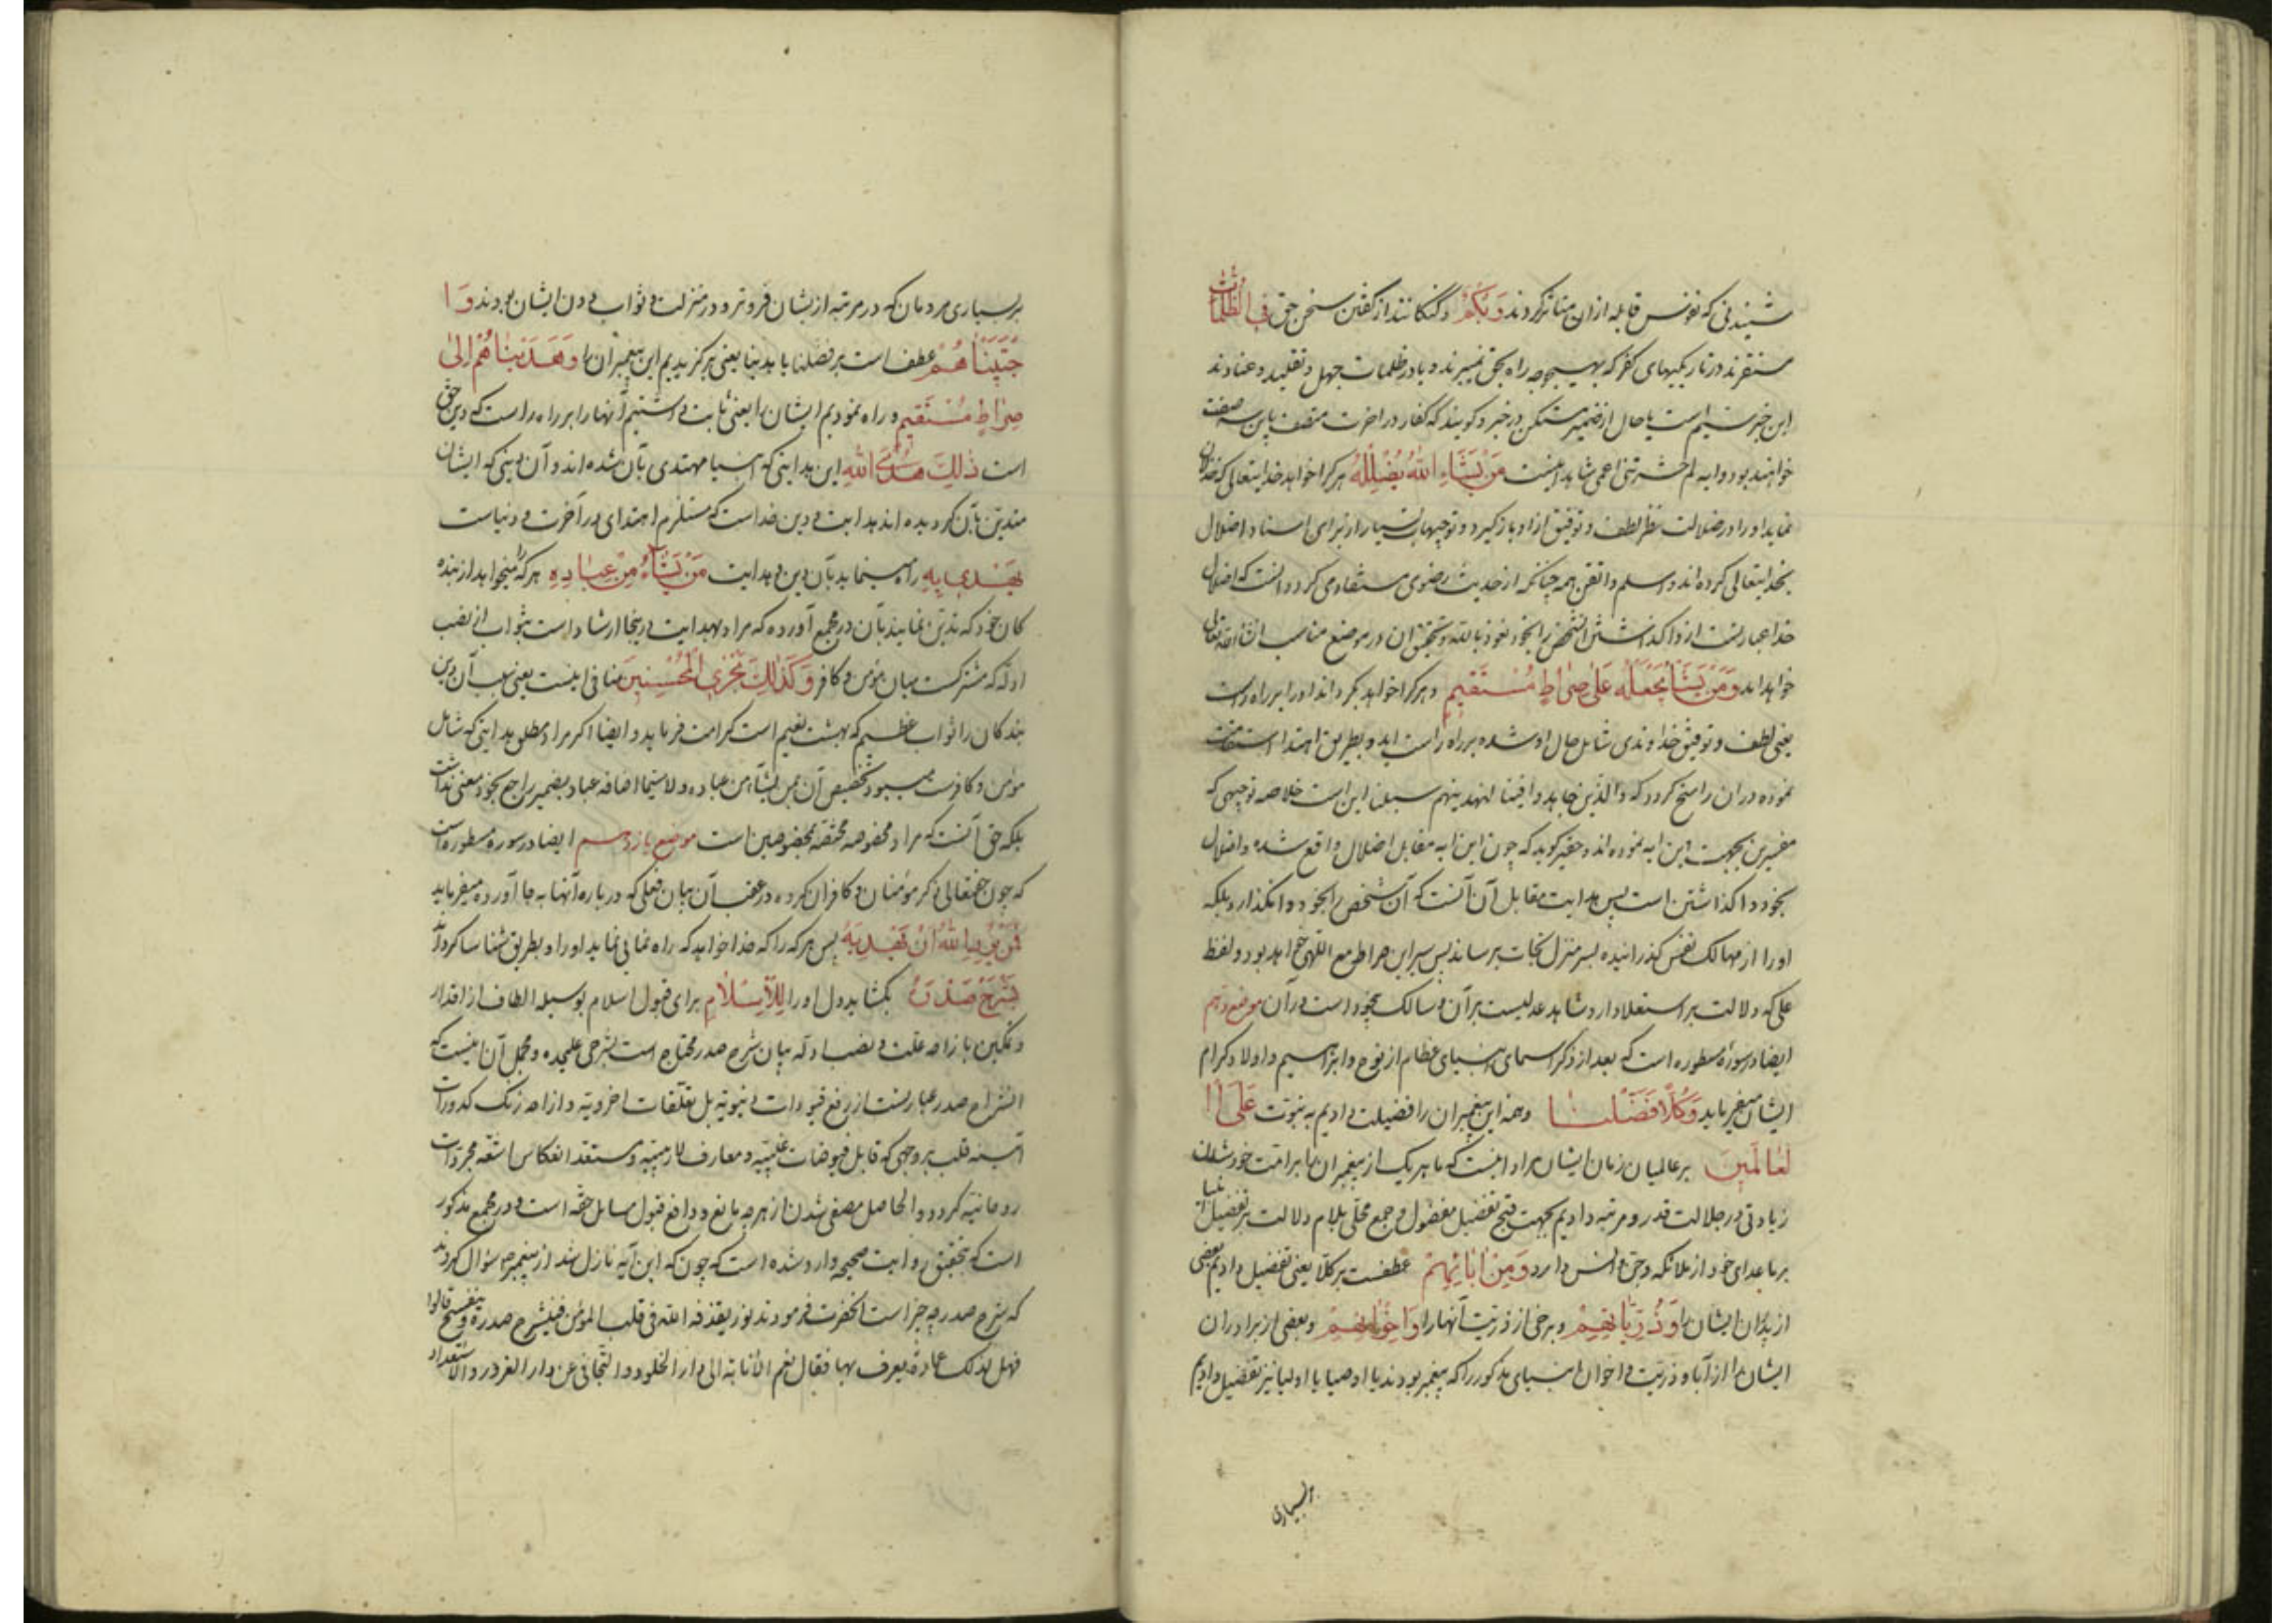 شنیدنی که نفوس قابله ازان متاثر کردند وَبُكْمٌ و گنگانند از گفتن سخن حق فِي الظُّلُمَاتِ
مستقرند در تاریکیهای کفر که بهیچوجه راه بحق نمیبرند و یا در ظلمات جهل و تقلید و عنادند
این خبر سیم است یا حال از ضمیر مستکن در خبر و گویند که کفار در اخرت متصف باین سه صفت
خواهند بود و ایه لم حشرتنی اعمی شاهد اینست مَنْ يَشَاءِ اللَّهُ يُضْلِلْهُ هر کرا خواهد خدایتعالی که خذلان
نماید او را در ضلالت نظر لطف و توفیق از او باز گیرد و توجیهات بسیار از برای اسناد اضلال
بخدایتعالی کرده اند و اسلم و اتقن همه چنانکه از حدیث رضوی مستفاد می کردد انست که اضلال
خدا عبارتست از واگذاشتن انشخص را بخود نعوذ بالله و تحقیق ان در موضع مناسب انشاءالله تعالی
خواهد امد وَمَنْ يَشَأْ يَجْعَلْهُ عَلَى صِرَاطٍ مُسْتَقِيمٍ و هر کرا خواهد بگرداند او را بر راه راست
یعنی لطف و توفیق خداوندی شامل حال او شده بر راه راست اید و بطریق اهتدا استقامت
نموده دران راسخ کردد که والذین جاهدوا فینا لنهدینهم سبلنا این است خلاصه توجیهی که
مفسرین بجهت این ایه نموده اند و حقیر گوید که چون این ایه مقابل اضلال واقع شده و اضلال
بخود واگذاشتن است پس هدایت مقابل آن آنست که آن شخص را بخود وانگذارد بلکه
او را از مهالک نفس گذرانیده بسر منزل نجات برساند پس سیر این صراط مع اللهی خواهد بود و لفظ
علی که دلالت بر استعلا دارد شاهد عدلیست بر آن و سالک بیخود است در آن موضع دهم
ایضا در سوره مسطوره است که بعد از ذکر اسمای انبیای عظام از نوح و ابراهیم و اولاد کرام
ایشان میفرماید وَكُلًّا فَضَّلْنَا و همه این پیغمبران را فضیلت دادیم به نبوت عَلَى الْ
عَالَمِينَ بر عالمیان زمان ایشان مراد اینست که ما هر یک از پیغمبران را بر امت خودشان
زیادتی در جلالت قدر و مرتبه دادیم بجهت قبح تفضیل مفضول و جمع محلی بلام دلالت بر تفضیل انبیا
بر ماعدای خود از ملائکه و جن و انس دارد وَمِنْ آبَائِهِمْ عطفست بر کلا یعنی تفضیل دادیم بعضی
از پدران ایشان را وَذُرِّيَّاتِهِمْ و برخی از ذریت آنها را وَإِخْوَانِهِمْ و بعضی از برادران
ایشان را از آباء و ذریت و اخوان انبیای مذکور را که پیغمبر بودند یا اوصیا یا اولیا نیز تفضیل دادیم
بسیاری
بر بسیاری مردمان که در مرتبه از ایشان فروتر و در منزلت و ثواب دون ایشان بودند وَا
جْتَبَيْنَاهُمْ عطف است بر فضلنا یا هدینا یعنی برگزیدیم این پیغمبران را وَهَدَيْنَاهُمْ إِلَى
صِرَاطٍ مُسْتَقِيمٍ و راه نمودیم ایشان را یعنی ثابت داشتیم آنها را بر راه راست که دین حق
است ذَلِكَ هُدَى اللَّهِ این هدایتی که انبیا مهتدی بآن شده اند و آن دینی که ایشان
متدین بآن گردیده اند هدایت و دین خداست که مستلزم اهتدای در آخرت و دنیاست
يَهْدِي بِهِ راه مینماید بآن دین و هدایت مَنْ يَشَاءُ مِنْ عِبَادِهِ هر که را میخواهد از بنده
کان خود که تدین نمایند بآن در مجمع آورده که مراد بهدایت در اینجا ارشاد است بثواب نه نصب
ادله که مشترکست میان مؤمن و کافر وَكَذَلِكَ نَجْزِي الْمُحْسِنِينَ منافی اینست یعنی بسبب آن دین
بندکان را ثواب عظیم که بهشت نعیم است کرامت فرماید و ایضا اگر مراد مطلق هدایتی که شامل
مؤمن و کافرست میبود تخصیص آن بمن یشاء من عباده و لاسیما اضافه عباد بضمیر راجع بخود معنی نداشت
بلکه حق آنست که مراد مخصوصه مختصه بمخصوصین است موضع یازدهم ایضا در سوره مسطوره است
که چون حقتعالی ذکر مؤمنان و کافران کرده در عقب آن بیان فعلی که درباره آنها به جا آورده میفرماید
فَمَنْ يُرِدِ اللَّهُ أَنْ يَهْدِيَهُ پس هر که را که خدا خواهد که راه نمائی نماید او را و بطریق شناسا گرداند
يَشْرَحْ صَدْرَهُ بگشاید دل او را لِلْإِسْلَامِ برای قبول اسلام بوسیله الطاف از اقدار
و تمکین با ازاحه علت و نصب ادله بیان شرح صدر محتاج است بشرحی علیحده و مجمل آن اینست که
انشراح صدر عبارتست از رفع قیودات دنیویه بل تعلقات اخرویه و ازاحه زنگ کدورات
آئینه قلب بر وجهی که قابل فیوضات غیبیه و معارف لاریبیه و مستعد انعکاس اشعه مجردات
روحانیه گردد و الحاصل مصفی شدن از هر چه مانع و دافع قبول مسایل حقه است و در مجمع مذکور
است که بتحقیق روایت صحیحه وارد شده است که چون که این آیه نازل شد از پیغمبر ص سؤال کردند
که شرح صدر چه چیز است انحضرت فرمودند نور یقذفه الله فی قلب المؤمن فینشرح صدره و ینفسح قالوا
فهل لذلک امارة یعرف بها فقال نعم الانابة الی دار الخلود و التجافی عن دار الغرور و الاستعداد